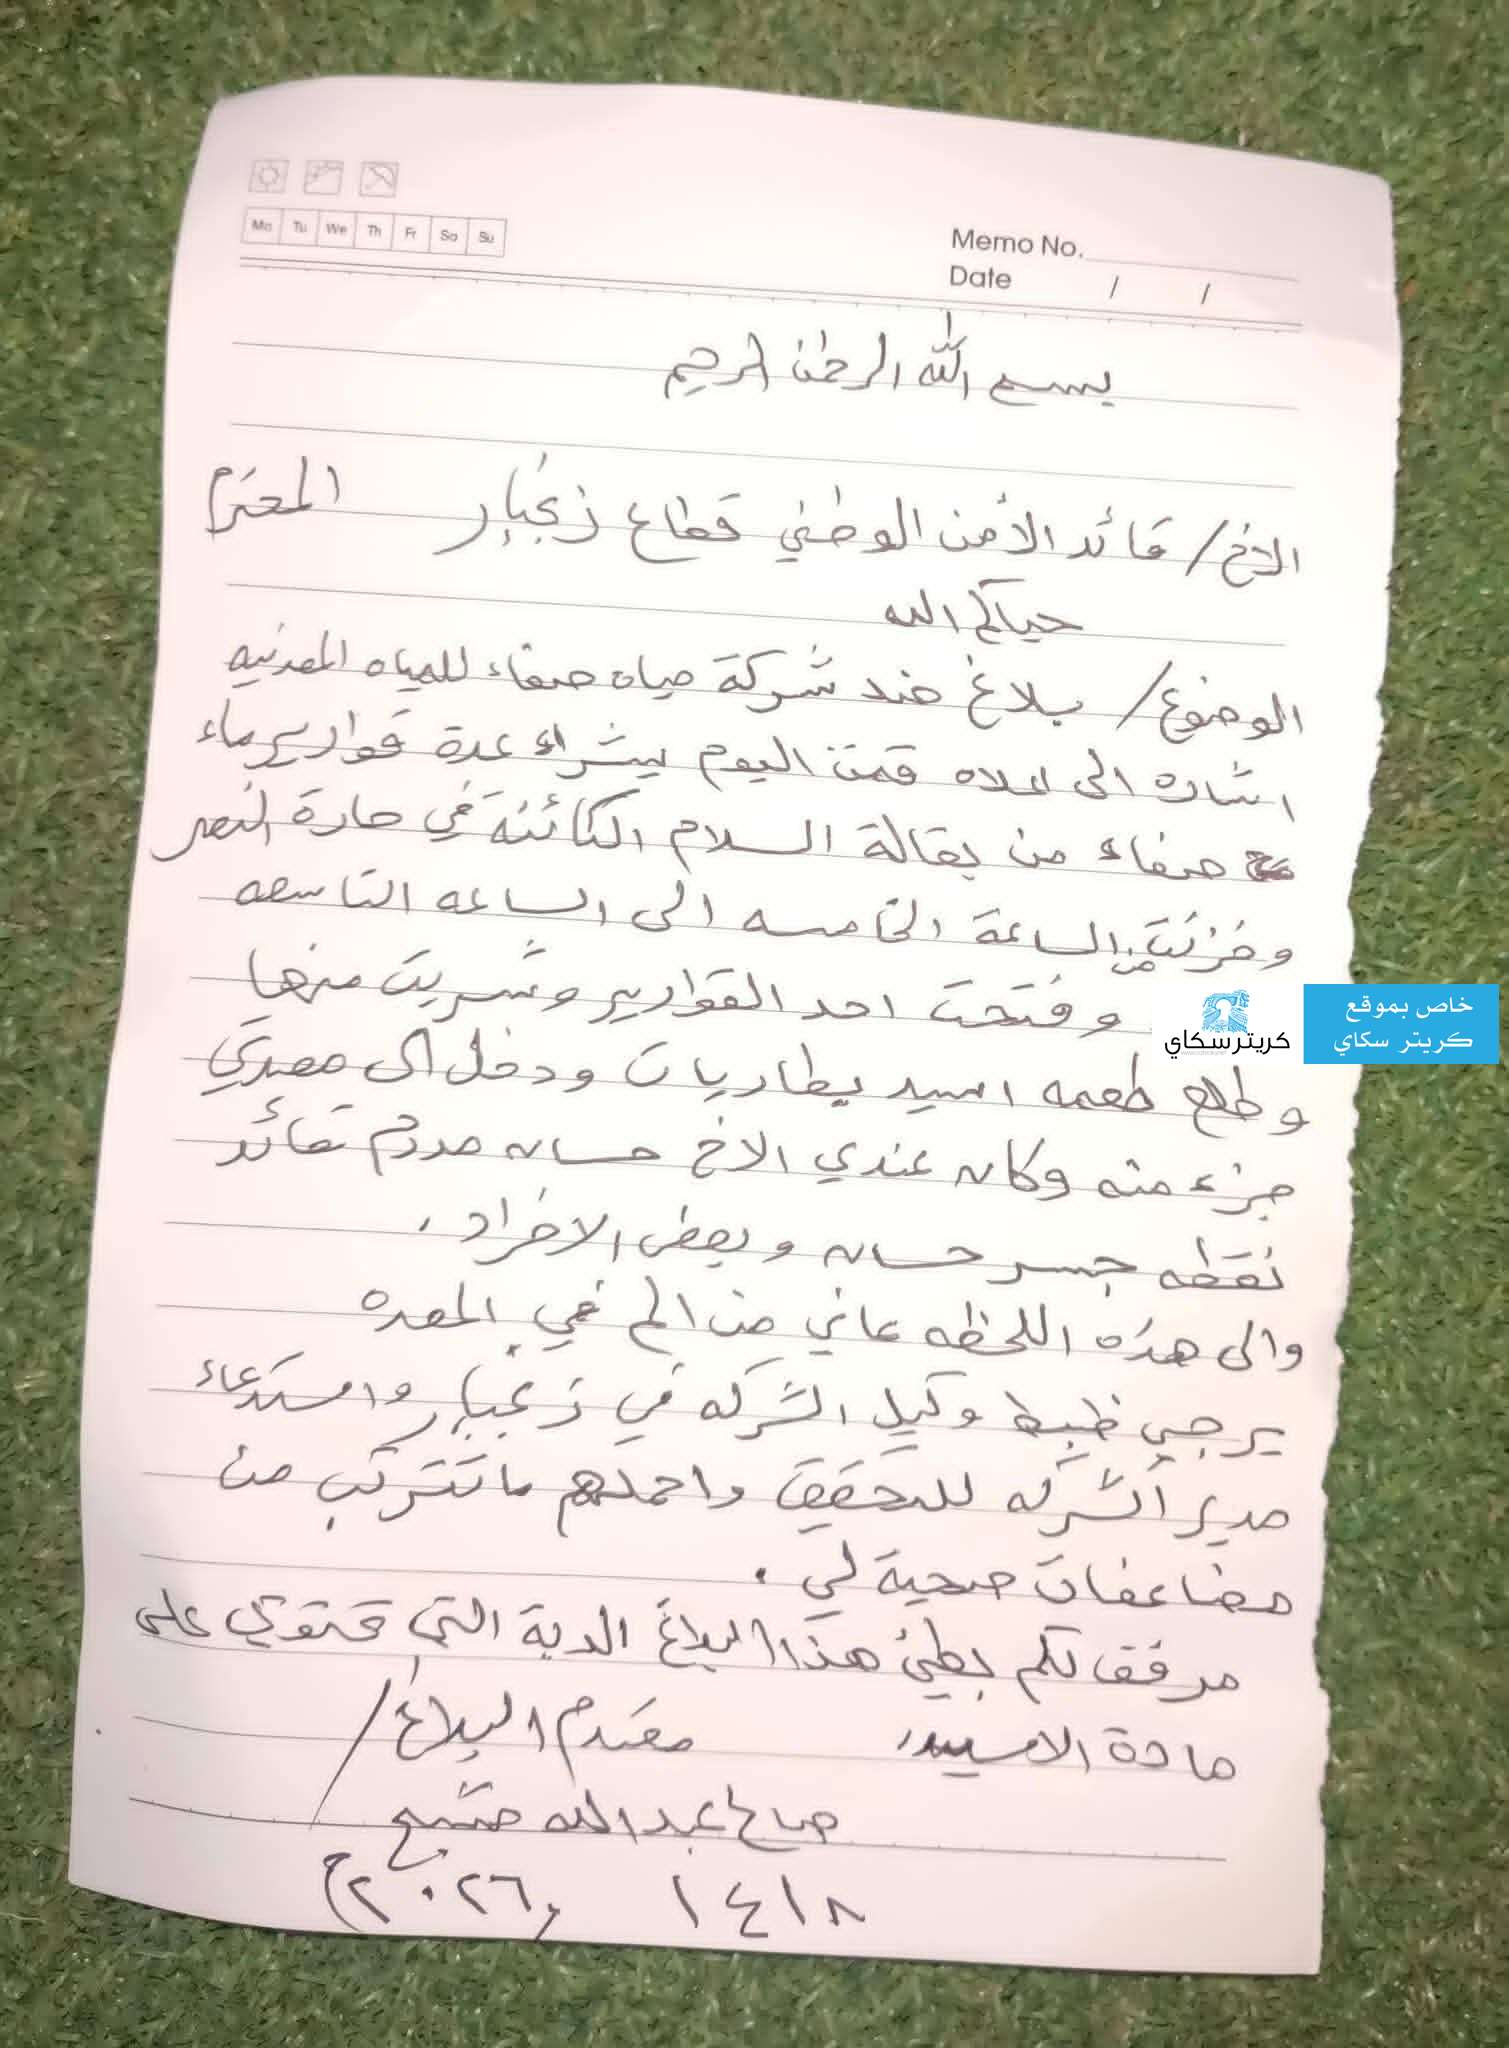 Mo Tu We Th Fr Sa Su
Memo No.
Date / /
بسم الله الرحمن الرحيم
الاخ/ قائد الأمن الوطني قطاع زنجبار المحترم
حياكم الله
الوضوع/ بلاغ ضد شركة مياه صفاء للمياه المعدنيه
اشاره الى اعلاه قمت اليوم بشراء عدة قوارير ماء
صفاء من بقالة السلام الكائنة في حارة النصر
وخزنت من الساعة الخامسه الى الساعه التاسعه
وفتحت احد القوارير وشربت منها
وطلع طعمه اسيد بطاريات ودخل الى معدتي
جزء منه وكان عندي الاخ حسان مدرم قائد
نقطه جسر حسان وبعض الافراد.
والى هذه اللحظه عاني من الم في المعده
يرجي ظبط وكيل الشركه في زنجبار واستدعاء
مدير الشركه للتحقيق واحملهم ماتترتب من
مضاعفات صحية لي.
مرفق لكم بطئ هذا البلاغ الدبة التي تحتوي على
مادة الاسيد، مقدم البلاغ/
صالح عبدالله
١٤/٨ ٢٠٢٦م
خاص بموقع
كريتر سكاي
كريتر سكاي